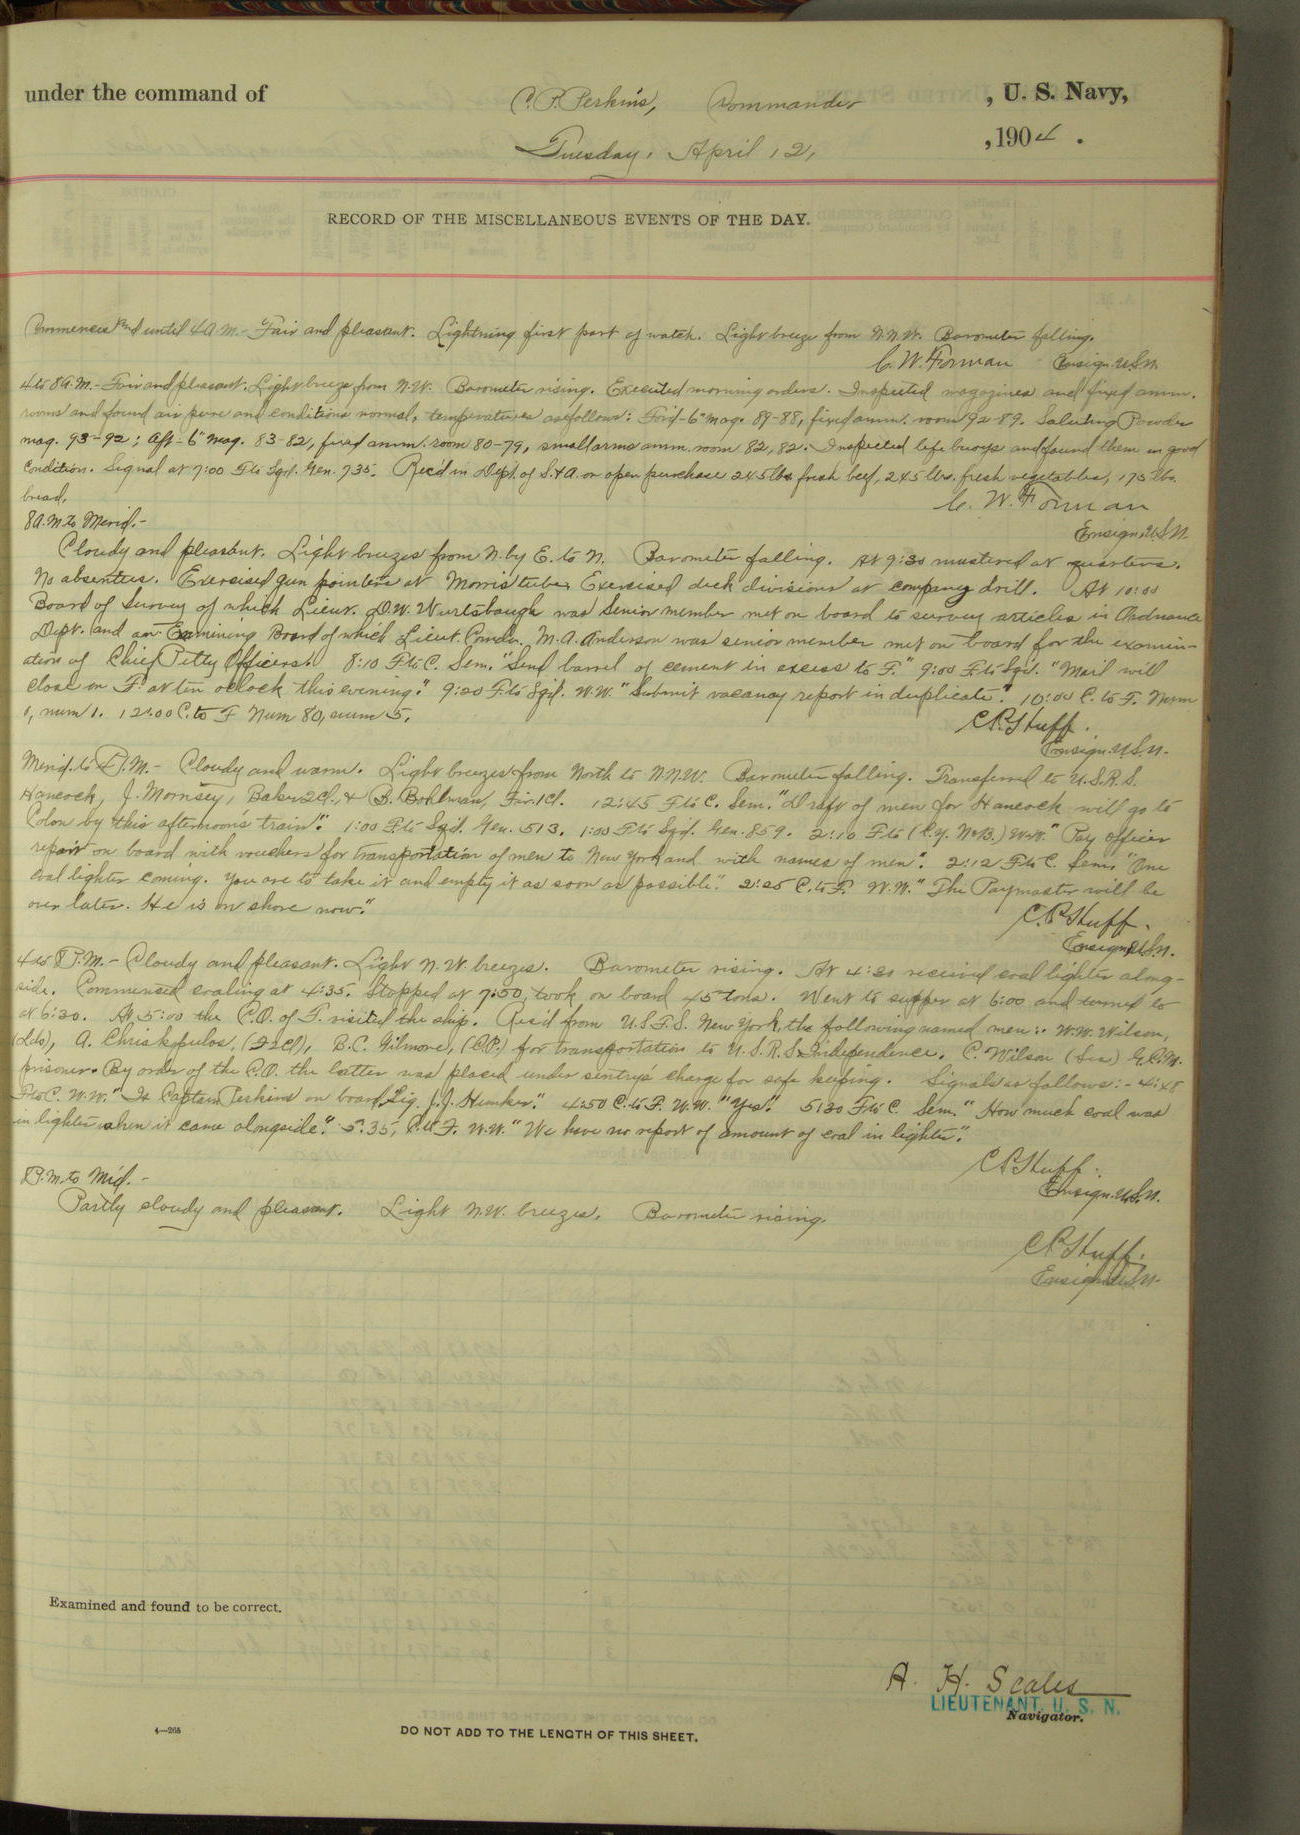 under the command of C. P. Perkins, Commander, U. S. Navy,
Tuesday, April 12, , 1904 .
RECORD OF THE MISCELLANEOUS EVENTS OF THE DAY.
Commences and until 4 A.M.- Fair and pleasant. Lightning first part of watch. Light breeze from N.N.W. Barometer falling.
C. W. Forman Ensign. U.S.N.
4 to 8 A.M.- Fair and pleasant. Light breeze from N.W. Barometer rising. Executed morning orders. Inspected magazines and fixed amm.
rooms and found air pure and conditions normal, temperatures as follows: For'd-6" mag. 89-88, fixed amm. room 92-89. Saluting Powder
mag. 93-92; Aft-6" mag. 83-82, fixed amm. room 80-79, small arms amm. room 82, 82. Inspected life buoys and found them in good
condition. Signal at 7:00 F. to Sqd. Gen. 735. Rec'd in Dept. of S.&A. on open purchase 245 lbs fresh beef, 245 lbs. fresh vegetables, 175 lbs.
bread.
C. W. Forman
Ensign, U.S.N.
8 A.M. to Merid.-
Cloudy and pleasant. Light breezes from N. by E. to N. Barometer falling. At 9:30 mustered at quarters.
No absentees. Exercised gun pointers at Morris tube. Exercised deck divisions at company drill. At 10:00
Board of Survey of which Lieut. D.W. Wurtsbaugh was senior member met on board to survey articles in Ordnance
Dept. and an Examining Board of which Lieut. Comdr. M. A. Anderson was senior member met on board for the examin-
ation of Chief Petty Officers. 8:10 F. to C. Sem. "Send barrel of cement in excess to F." 9:00 F. to Sqd. "Mail will
close on F. at ten oclock this evening." 9:20 F. to Sqd. W.W. "Submit vacancy report in duplicate." 10:00 C. to F. Num
1, num 1. 12:00 C. to F Num 80, num 5.
C.P. Huff.
Ensign. U.S.N.
Merid. to 4 P.M.- Cloudy and warm. Light breezes from North to N.N.W. Barometer falling. Transferred to U.S.R.S.
Hancock, J. Morrisey, Baker 2 Cl., & B. Bohlman, Fir. 1 Cl. 12:45 F. to C. Sem. "Draft of men for Hancock will go to
Colon by this afternoon's train". 1:00 F. to Sqd. Gen. 513. 1:00 F. to Sqd. Gen. 859. 2:10 F. to (C.Y. N.B.) W.W. "Pay officer
repair on board with vouchers for transportation of men to New York and with names of men". 2:12 F. to C. Sem. "One
coal lighter coming. You are to take it and empty it as soon as possible". 2:25 C. to F. W.W. "The Paymaster will be
over later. He is on shore now."
C.P. Huff.
Ensign, U.S.N.
4 to 8 P.M.- Cloudy and pleasant. Light N.W. breezes. Barometer rising. At 4:30 received coal lighter along-
side. Commenced coaling at 4:35. Stopped at 7:50, took on board 45 tons. Went to supper at 6:00 and turned to
at 6:30. At 5:00 the C.O. of F. visited the ship. Rec'd from U.S.F.S. New York, the following named men:- W.W. Wilson,
(Lds), A. Chriskopulos, (F2Cl), B.C. Gilmore, (C.P.) for transportation to U.S.R.S. Independence. C. Wilson (Sea) G.C.M.
prisoner. By order of the C.O. the latter was placed under sentry's charge for safe keeping. Signals as follows:- 4:48
F. to C. W.W. "Is Captain Perkins on board, Sig. J.J. Hunker." 4:50 C. to F. W.W. "Yes". 5:30 F. to C. Sem. "How much coal was
in lighter when it came alongside." 5:35, C. to F. W.W. "We have no report of amount of coal in lighter".
C.P. Huff.
Ensign. U.S.N.
8 P.M. to Mid.-
Partly cloudy and pleasant. Light N.W. breezes. Barometer rising.
C.P. Huff.
Ensign U.S.N.
Examined and found to be correct.
A. H. Scales
LIEUTENANT, U. S. N.
Navigator.
4—268
DO NOT ADD TO THE LENGTH OF THIS SHEET.